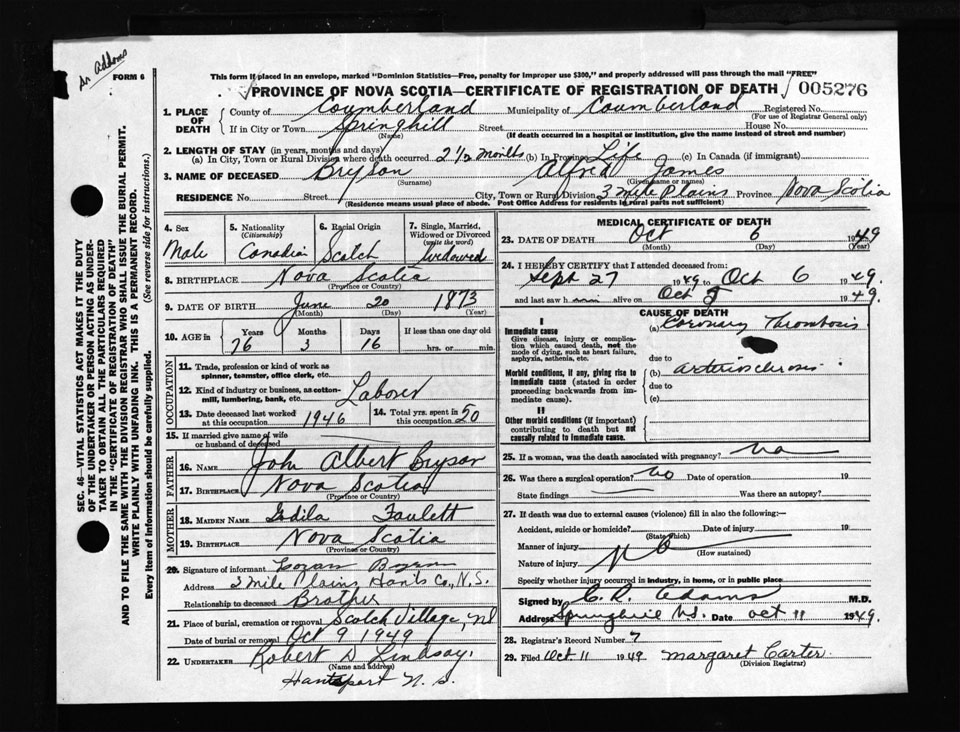 Dr Addams
FORM 6
This form if placed in an envelope, marked "Dominion Statistics—Free, penalty for improper use $300," and properly addressed will pass through the mail "FREE"
PROVINCE OF NOVA SCOTIA—CERTIFICATE OF REGISTRATION OF DEATH 005276
1. PLACE OF DEATH
County of Coumberland Municipality of Coumberland Registered No.
(For use of Registrar General only)
If in City or Town Springhill Street House No.
(Name) (If death occurred in a hospital or institution, give the name instead of street and number)
2. LENGTH OF STAY (in years, months and days)
(a) In City, Town or Rural Division where death occurred 2 1/2 months (b) In Province Life (c) In Canada (if immigrant)
3. NAME OF DECEASED Bryson Alfred James
(Surname) (Given name or names)
RESIDENCE No. Street City, Town or Rural Division 3 mile Plains Province Nova Scotia
(Residence means usual place of abode. Post Office Address for residents in rural parts not sufficient)
SEC. 46—VITAL STATISTICS ACT MAKES IT THE DUTY
OF THE UNDERTAKER OR PERSON ACTING AS UNDER-
TAKER TO OBTAIN ALL THE PARTICULARS REQUIRED
IN THE "CERTIFICATE OF REGISTRATION OF DEATH"
AND TO FILE THE SAME WITH THE DIVISION REGISTRAR WHO SHALL ISSUE THE BURIAL PERMIT.
WRITE PLAINLY WITH UNFADING INK. THIS IS A PERMANENT RECORD.
Every item of information should be carefully supplied. (See reverse side for instructions.)
4. Sex
Male
5. Nationality
(Citizenship)
Canadian
6. Racial Origin
Scotch
7. Single, Married,
Widowed or Divorced
(write the word)
Widowed
8. BIRTHPLACE Nova Scotia
(Province or Country)
9. DATE OF BIRTH June 20 1873
(Month) (Day) (Year)
10. AGE in
Years Months Days If less than one day old
76 3 16 hrs. or min.
OCCUPATION
11. Trade, profession or kind of work as
spinner, teamster, office clerk, etc.
12. Kind of industry or business, as cotton-
mill, lumbering, bank, etc. Laborer
13. Date deceased last worked
at this occupation 1946
14. Total yrs. spent in
this occupation 50
15. If married give name of wife
or husband of deceased
FATHER
16. NAME John Albert Bryson
17. BIRTHPLACE Nova Scotia
(Province or Country)
MOTHER
18. MAIDEN NAME
19. BIRTHPLACE Nova Scotia
(Province or Country)
20. Signature of informant
Address 3 Mile Plains Hants Co., N.S.
Relationship to deceased Brother
21. Place of burial, cremation or removal Scotch Village, NS
Date of burial or removal Oct 9 1949
22. UNDERTAKER Robert D Lindsay,
(Name and address)
Hantsport N. S.
MEDICAL CERTIFICATE OF DEATH
23. DATE OF DEATH Oct 6 1949
(Month) (Day) (Year)
24. I HEREBY CERTIFY that I attended deceased from:
Sept 27 1949 to Oct 6 1949.
and last saw h im alive on Oct 5 1949.
CAUSE OF DEATH
I
Immediate cause
Give disease, injury or complica-
tion which caused death, not the
mode of dying, such as heart failure,
asphyxia, asthenia, etc.
(a) Coronary Thrombosis
due to
Morbid conditions, if any, giving rise to
immediate cause (stated in order
proceeding backwards from im-
mediate cause).
(b) arteriosclerosis
due to
(c)
II
Other morbid conditions (if important)
contributing to death but not
causally related to immediate cause.
25. If a woman, was the death associated with pregnancy? no
26. Was there a surgical operation? no Date of operation 19
State findings Was there an autopsy?
27. If death was due to external causes (violence) fill in also the following:—
Accident, suicide or homicide? Date of injury 19
(State which)
Manner of injury
(How sustained)
Nature of injury no
Specify whether injury occurred in industry, in home, or in public place
Signed by C. R. Adams M.D.
Address Springhill N.S. Date Oct 11 1949.
28. Registrar's Record Number 7
29. Filed Oct 11 1949 Margaret Carter
(Division Registrar)